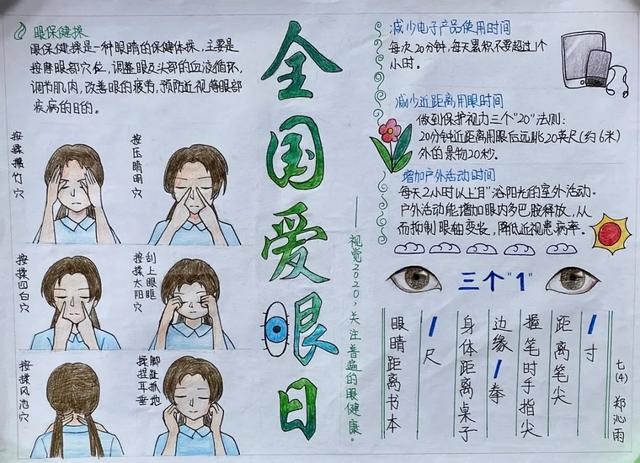 眼保健操
眼保健操是一种眼睛的保健体操,主要是
按摩眼部穴位,调整眼及头部的血液循环,
调节肌肉,改善眼的疲劳,预防近视等眼部
疾病的目的。
按揉攒竹穴
按压睛明穴
按揉四白穴
按揉太阳穴
刮上眼眶
按揉风池穴
揉捏耳垂
脚趾抓地
全国爱眼日
——视觉2020,关注普遍的眼健康。
减少电子产品使用时间
每次20分钟,每天累积不要超过1个
小时。
减少近距离用眼时间
做到保护视力三个"20"法则:
20分钟近距离用眼后远眺20英尺(约6米)
外的景物20秒。
增加户外活动时间
每天2小时以上日"浴阳光的室外活动。
户外活动能增加眼内多巴胺释放,从
而抑制眼轴变长,降低近视患病率。
三个"1"
眼睛距离书本
1尺
身体距离桌子
边缘1拳
握笔时手指尖
距离笔尖
1寸
七(4) 郑沁雨